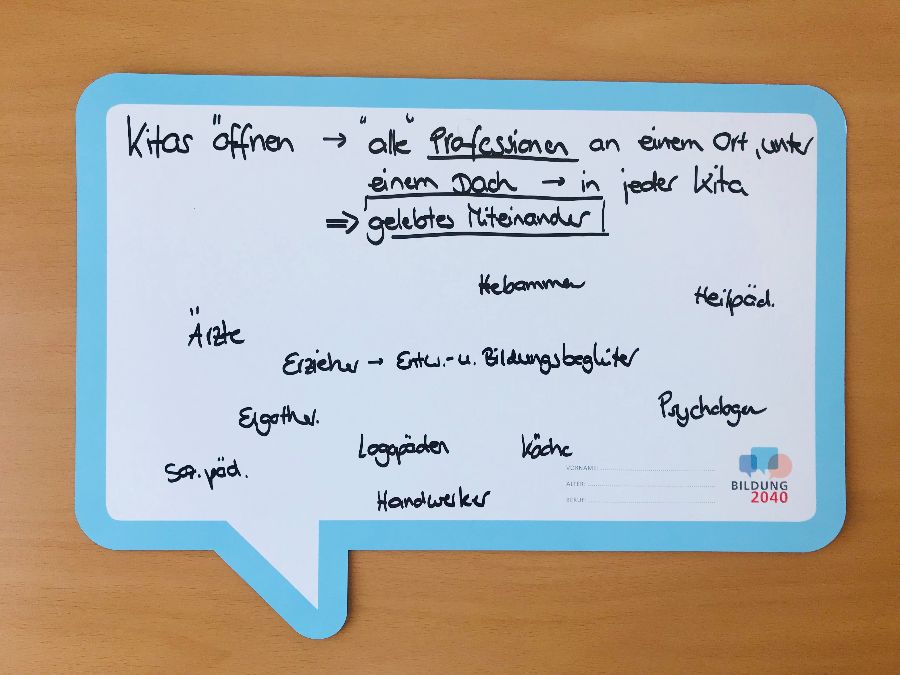 Kitas öffnen → "alle" Professionen an einem Ort, unter
einem Dach → in jeder Kita
⇒ gelebtes Miteinander
Hebammen
Heilpäd.
Ärzte
Erzieher → Entw.- u. Bildungsbegleiter
Psychologen
Ergother.
Logopäden
Köche
Soz.päd.
Handwerker
VORNAME:
ALTER:
BERUF:
BILDUNG
2040